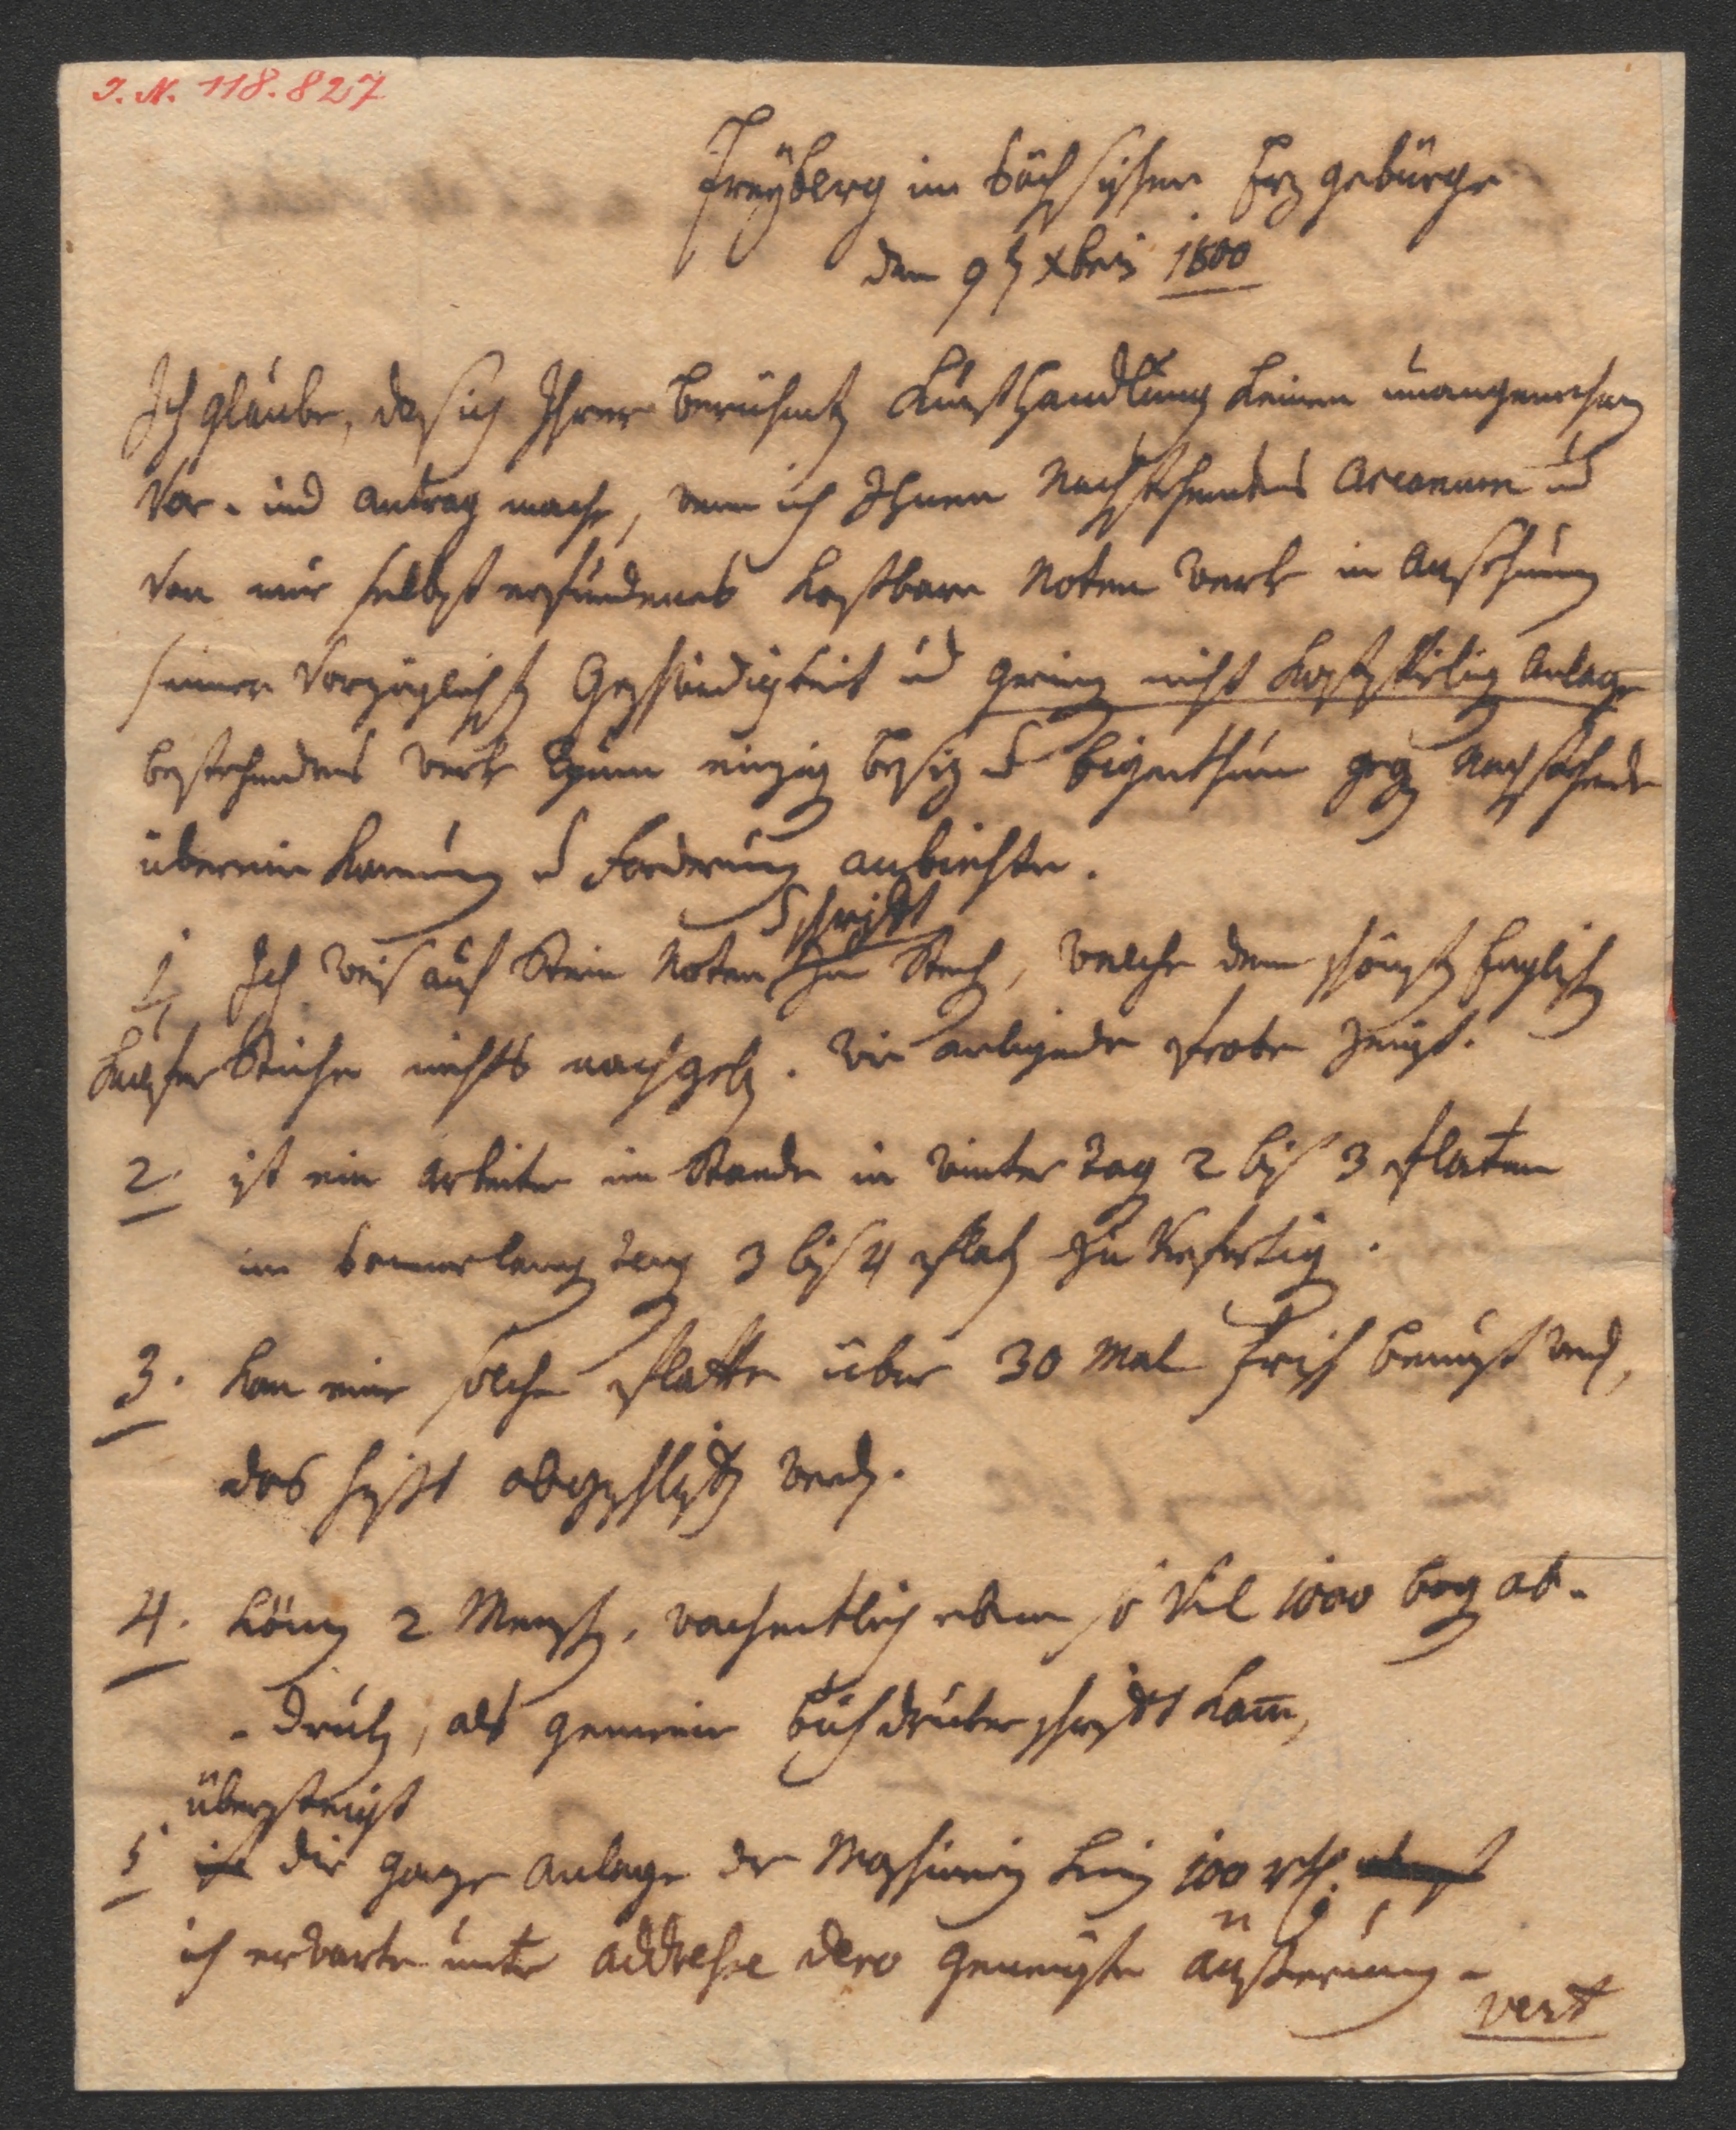 I. N. 118.827
Freÿberg im Sächsischen Erzgebürge
den 9t Xbris 1800
Ich glaube, das ich Ihrer Berühmten Kunsthandlung keinen unangenehmen
Vor- und antrag mache, wenn ich Ihnen Nachstehendes Arcanum und
von mir selbst erfundenes kostbare Noten werk in Ansehung
seiner Vorzüglichsten Geschwindigkeit und gering nicht kostspielig Anlage
bestehendes werk zum einzig besiz und Eigenthum gegen Nachstehende
überein kommung und Forderung anbiethe.
Schrift
1 Ich weis auf Stein Noten zu Stechen, welche dem schönsten Englischen
Kupfer Stiche nichts nachgeben. wie anligende Probe zeigt.
2. ist ein Arbeiter im Stande in winter tag 2 bis 3 Platen
im Sommerlang tag 3 bis 4 Platen zu Verfertigen.
3. kan eine solche Platte über 30 Mal Frisch benuzt werden,
das heist abgeschlifen werden.
4. können 2 Menschen, wochentlich eben so viel 1000 bog ab-
-drucken, als gemeine Buchdruckerschrift kann,
übersteigt
5 ist die ganze Anlage der Maschinerie keine 100 rth.
ich erwarte unter addresse dero geneigte äusserung -
vert